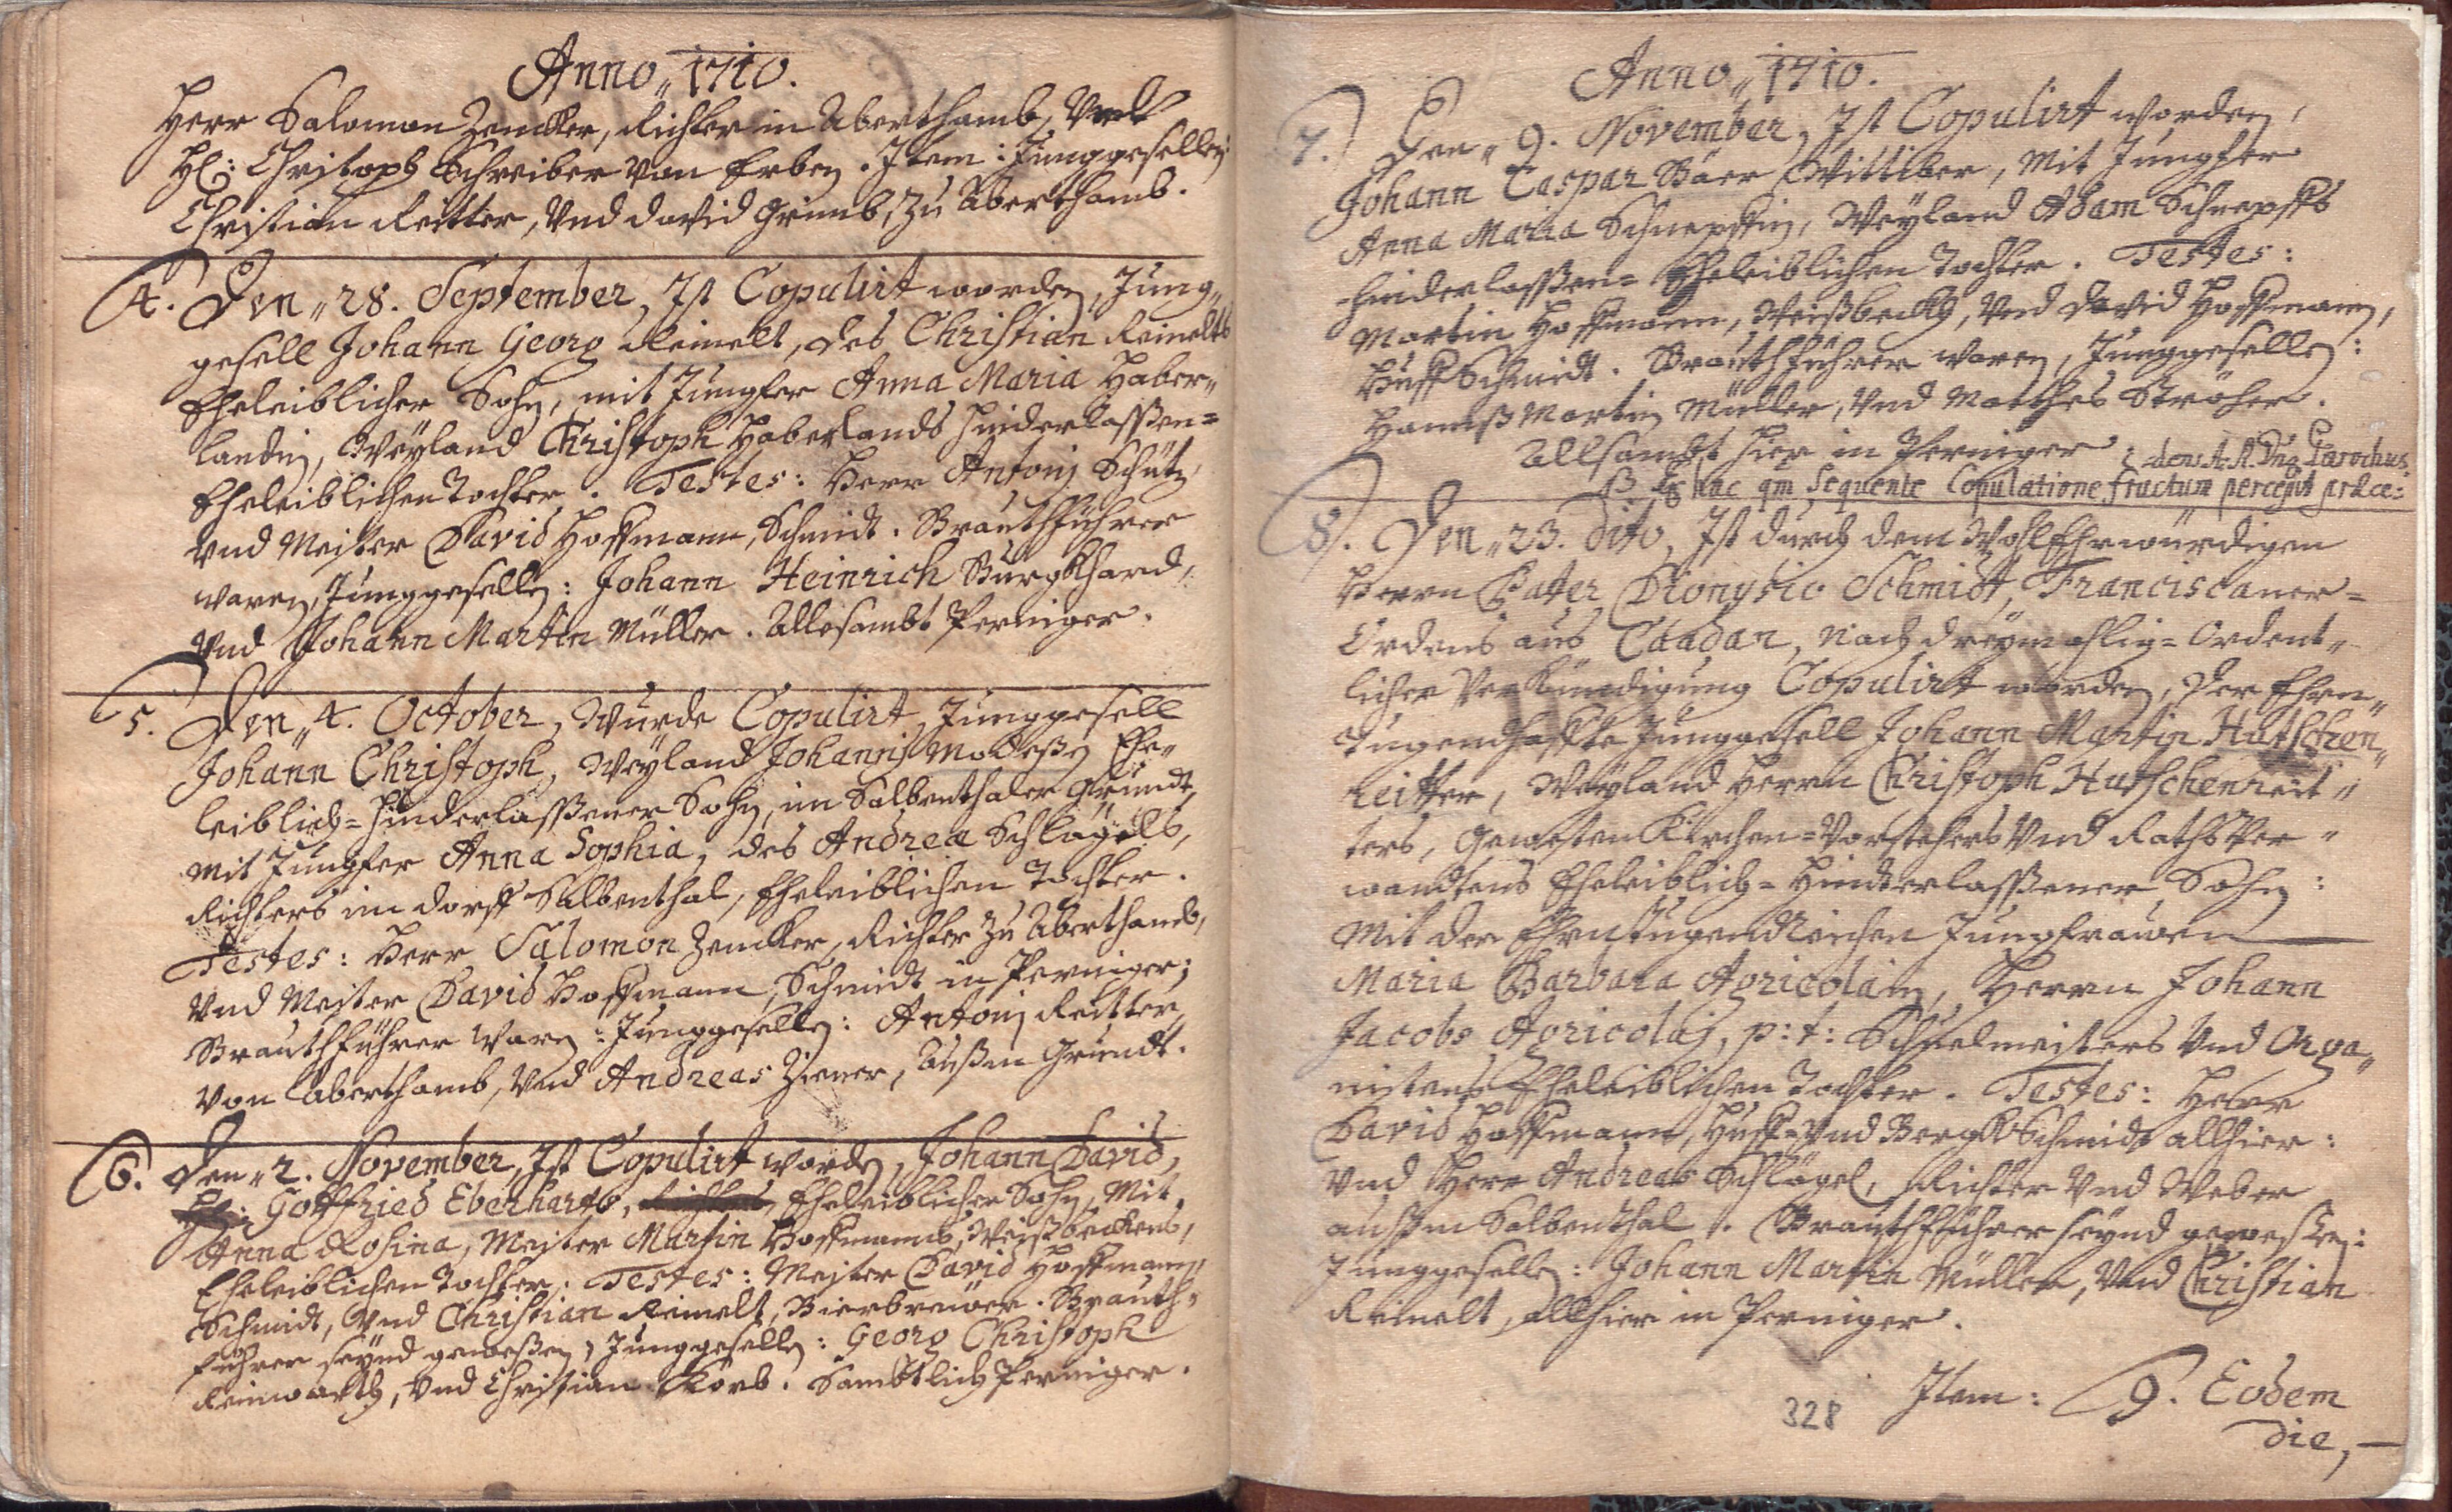 Anno„ 1710.
Herr Salomon Zencker, Richter in Aberthamb, Undt
H: Christoph Schreiber von Erben. Item: Junggesellen:
Christian Reitter, Und David Grimb, zu Aberthamb.
4. Den„ 28. September, Ist Copulirt worden, Jung„
gesell Johann Georg Reinelt, des Christian Reinelts
Eheleiblicher Sohn, mit Jungfer Anna Maria Haber„
landin, Weyland Christoph Haberlands hinderlassen=
Eheleiblichen Tochter. Testes: Herr Antonj Schütz,
Und Meister David Hoffmann, Schmidt. Brauthführer
waren, Junggesellen: Johann Heinrich Burgkhard,
Und Johann Martin Müller. Allesambt Perninger.
5. Den„ 4. October, Wurde Copulirt, Junggesell
Johann Christoph, Weyland Johannis Modeßen Ehe„
leiblich=hinderlassener Sohn, im Salbenthaler Grundt,
mit Jungfer Anna Sophia, des Andreæ Schlägels,
Richters im dorff Salbenthal, Eheleiblichen Tochter.
Testes: Herr Salomon Zencker, Richter zu Aberthamb,
Und Meister David Hoffmann, Schmidt in Perninger;
Brauthführer waren: Junggesellen: Antonj Reitter,
von Aberthamb, Und Andreas Ziener, außm Grundt.
6. Den„ 2. November, Ist Copulirt worden, Johann David,
Gottfried Eberhards, Eheleiblicher Sohn, Mit
Anna Rosina, Meister Martin Hoffmanns, Weißbeckens,
Eheleiblichen Tochter. Testes: Meister David Hoffmann,
Schmidt, Und Christian Reinelt, Bierbreuer. Brauth„
führer seynd geweßen, Junggesellen: Georg Christoph
Reinwarth, Und Christian Korb. Sambtlich Perninger.
Anno„ 1710.
7. Den„ 9. November, Ist Copulirt worden,
Johann Caspar Bäer Wittiber, Mit Jungfer
Anna Maria Schnepffin, Weyland Adam Schnepffs
hinderlassen= Eheleiblichen Tochter. Testes:
Martin Hoffmann, Weißbeckh, Und David Hoffmann,
Huff Schmidt. Brauthführer waren, Junggesellen:
Hannß Martin Müller, Und Matthes Ströher.
Allsambt hier in Perninger
dens A. R. Dng Parochus.
hac qm Sequente Copulatione fructum percepit præce=
8. Den„ 23. dito, Ist durch dem WohlEhrwürdigen
Herrn Pater Dionysio Schmidt, Franciscaner=
Ordens aus Caadan, Nach dreymahlig=Ordent„
licher Verkündigung Copulirt worden, der Ehren„
Tugendhaffte Junggesell Johann Martin Hutschen„
reitter, Weyland Herrn Christoph Hutschenreit„
ters, Gewesten Kirchen=Vorstehers Und RathsVer„
wandtens Eheleiblich=Hinderlassener Sohn:
Mit der EhrnTugendreichen Jungfrauen
Maria Barbara Agricolain, Herrn Johann
Jacobs Agricolaj, p: t: Schuelmeisters Und Orga„
nistens Eheleiblichen Tochter. Testes: Herr
David Hoffmann, Huff=Und BergkSchmidt allhier:
Und Herr Andreas Schlägel, Richter Und Weber
außm Salbenthal. Brauthführer seynd geweßen:
Junggesellen: Johann Martin Müller, Und Christian
Reinelt, allhier in Perninger.
Item: 9. Eodem
die,
328